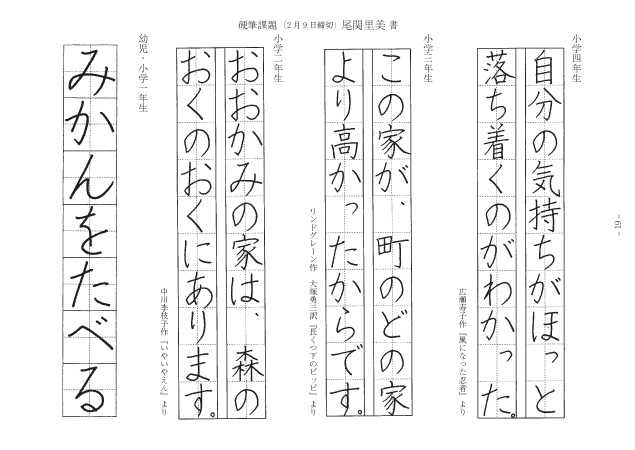 硬筆課題（２月９日締切）尾関里美 書
小学四年生
自分の気持ちがほっと
落ち着くのがわかった。
広瀬寿子作『風になった忍者』より
小学三年生
この家が、町のどの家
より高かったからです。
リンドグレーン作 大塚勇三訳『長くつ下のピッピ』より
小学二年生
おおかみの家は、森の
おくのおくにあります。
中川李枝子作『いやいやえん』より
幼児・小学一年生
みかんをたべる
- 19 -